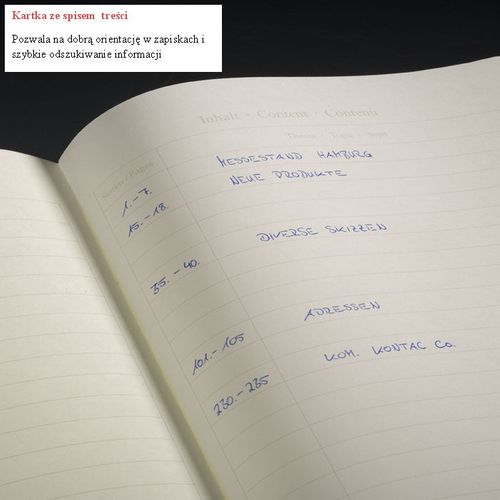 Kartka ze spisem treści
Pozwala na dobrą orientację w zapiskach i
szybkie odszukiwanie informacji
Inhalt • Content • Contenu
Thema / Topic / Sujet
Seiten / Pages
1.-7. MESSESTAND HAMBURG
15.-18. NEUE PRODUKTE
35.-40. DIVERSE SKIZZEN
101.-105 ADRESSEN
230.-235 KOM. KONTAC Co.